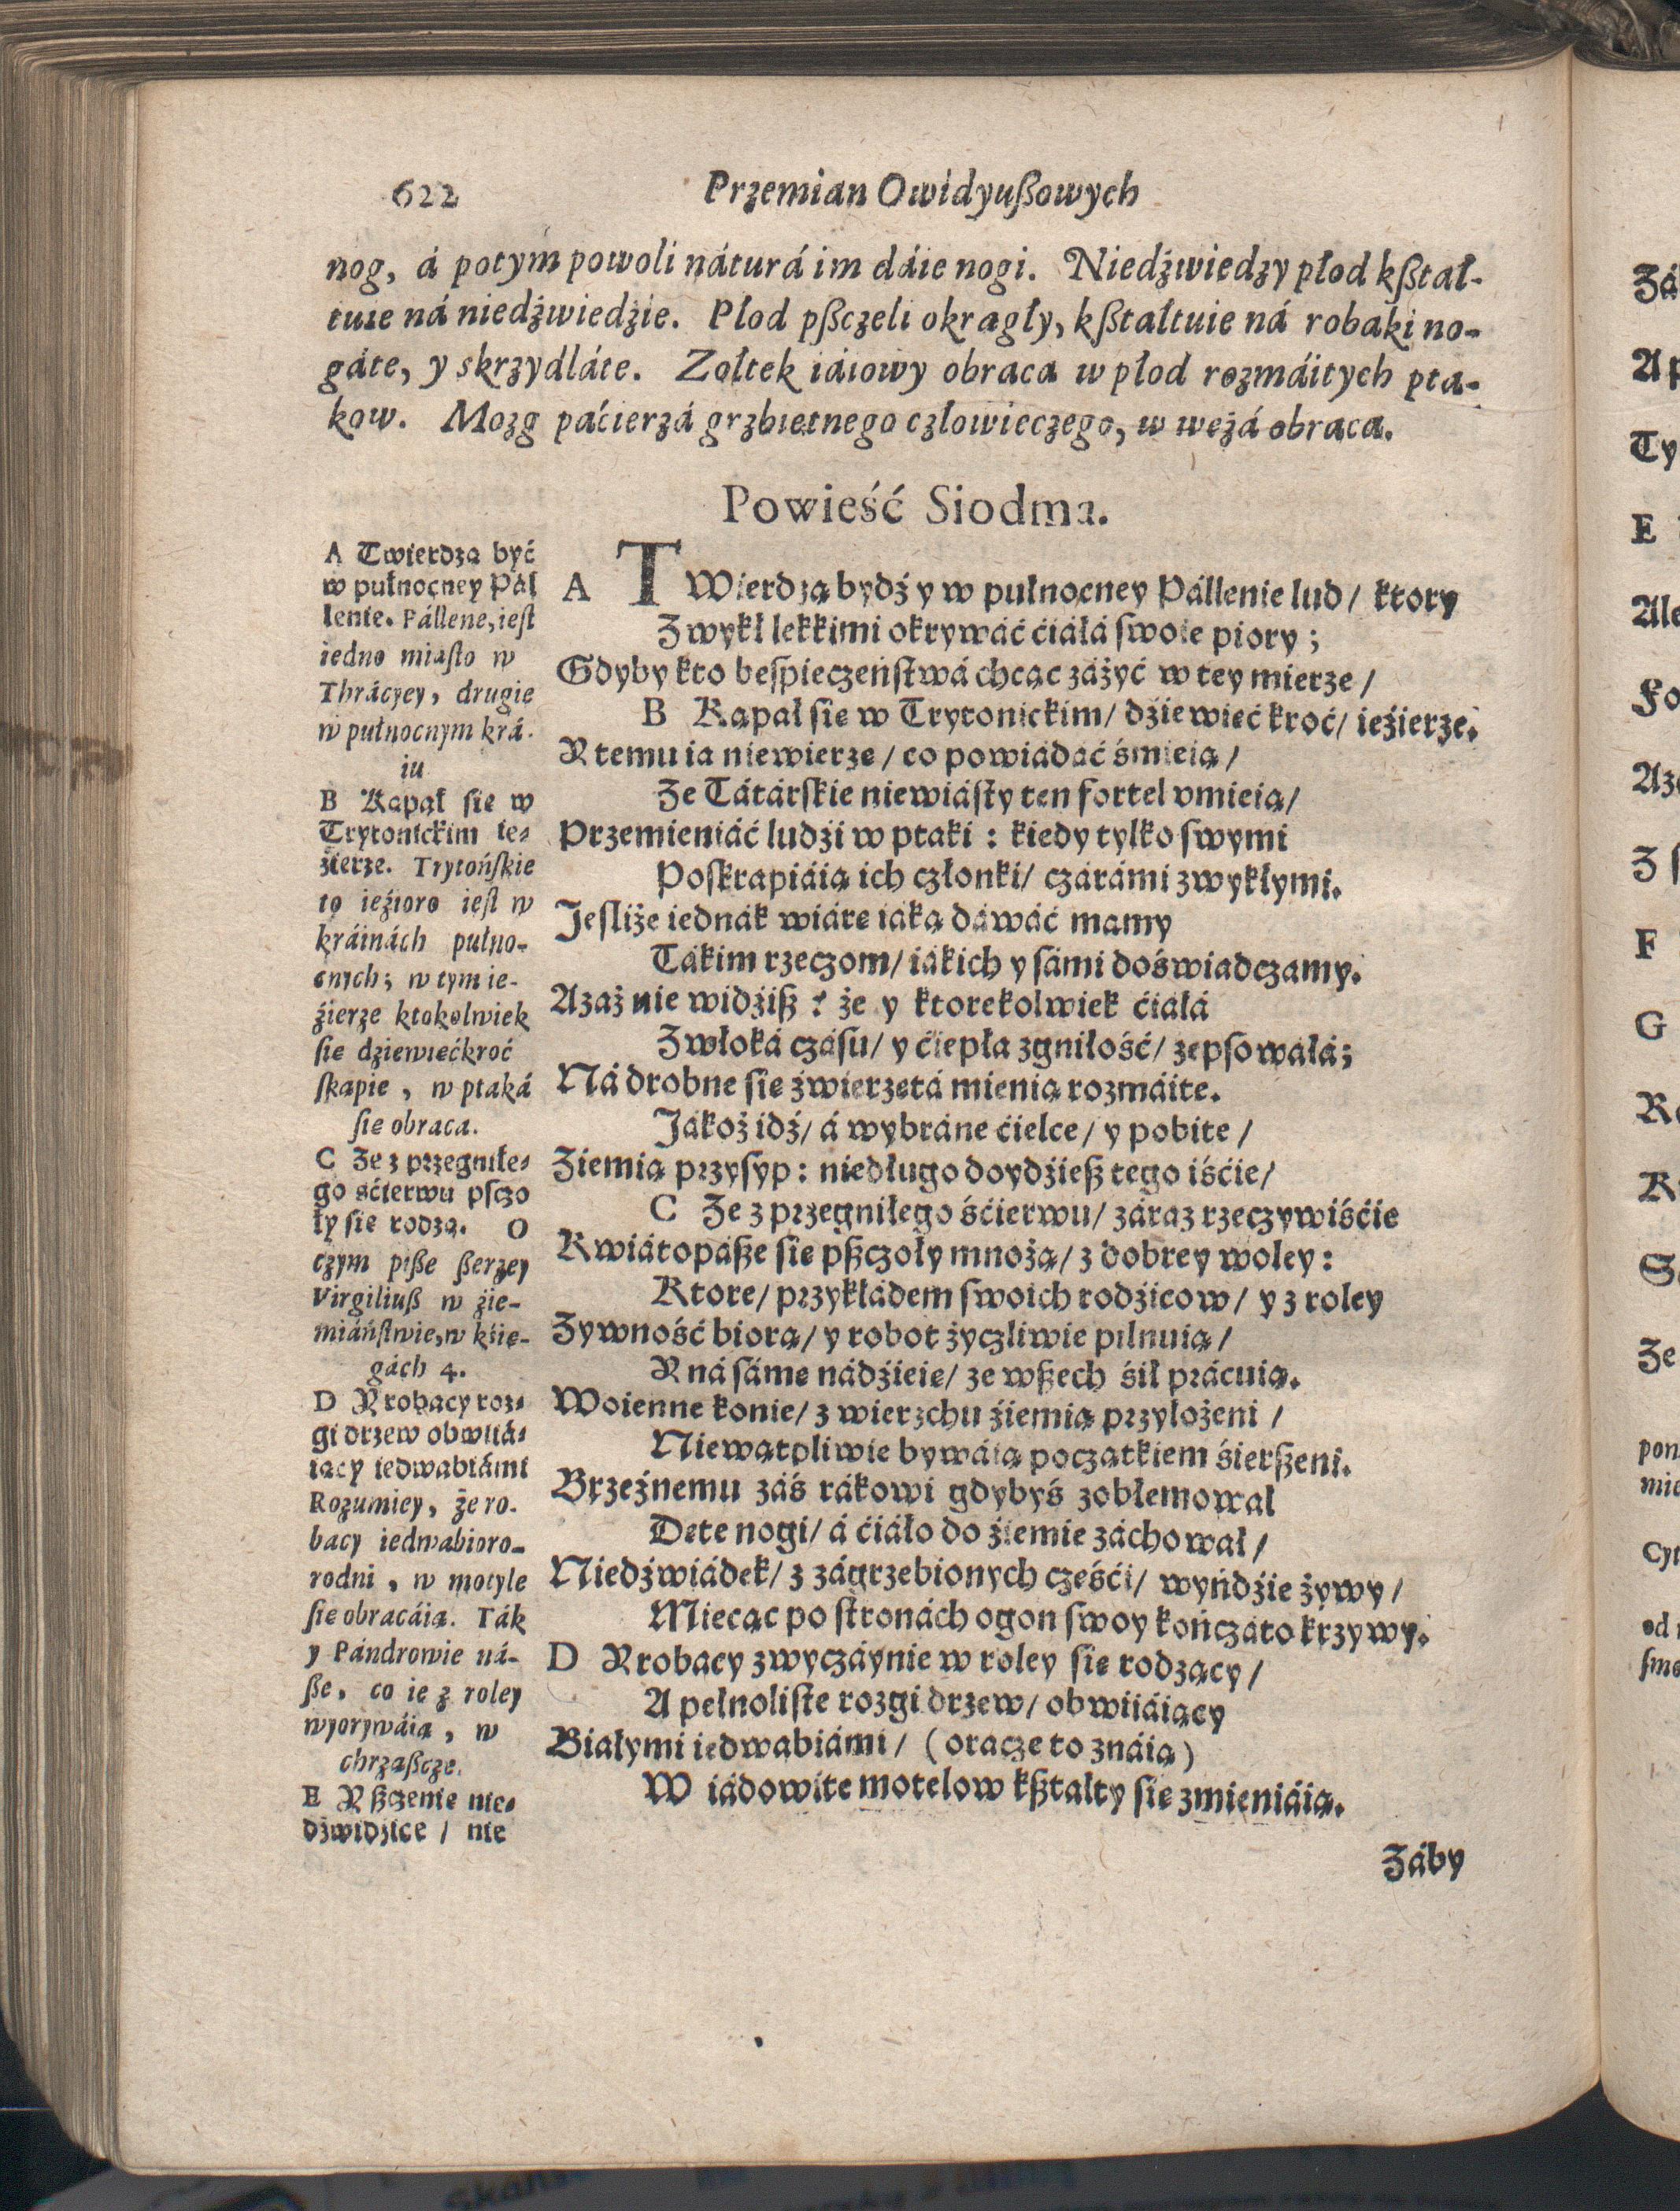 622
Przemian Owidyußowych
nog, á potym powoli náturá im dáie nogi. Niedźwiedzy płod kßtał-
tuie ná niedźwiedźie. Płod pßczeli okrągły, kßtałtuie ná robaki no-
gáte, y skrzydláte. Zołtek iáiowy obraca w płod rozmáitych pta-
kow. Mozg páćierzá grzbietnego człowieczego, w wężá obraca.
Powieść Siodma.
A Twierdzą być
w pułnocney Pál
lenie. Pállene, iest
iedno miásto w
Thrácyey, drugie
w pułnocnym krá-
iu
B Kąpał się w
Trytonickim ie-
źierze. Trytońskie
to ieźioro iest w
kráinách pułno-
cnych; w tym ie-
źierze ktokolwiek
się dziewiećkroć
skąpie, w ptaká
się obraca.
C Że z przegniłe-
go śćierwu psczo
ły się rodzą. O
czym piße ßerzey
Virgiliuß w źie-
miáństwie, w kśię-
gách 4.
D A robacy roz-
gi drzew obwiiá-
iący iedwabiámi
Rozumiey, że ro-
bacy iedwabioro-
rodni, w motyle
się obracáią. Ták
y Pándrowie ná-
ße, co ie z roley
wyorywáią, w
chrząßcze.
E A ßczenię nie-
dźwidźice / nie
A TWierdzą bydź y w pułnocney Pállenie lud / ktory
Zwykł lekkimi okrywáć ćiáłá swoie piory;
Gdyby kto bespieczeństwá chcąc záżyć w tey mierze /
B Kąpał się w Trytonickim / dźiewięć kroć / ieźierze.
A temu ia niewierzę / co powiádáć śmieią /
Że Tátárskie niewiásty ten fortel vmieią /
Przemieniáć ludźi w ptaki: kiedy tylko swymi
Poskrapiáią ich członki / czárámi zwykłymi.
Jesliże iednák wiárę iáką dáwáć mamy
Tákim rzeczom / iákich y sámi doświadczamy.
Azaż nie widźiß? że y ktorekolwiek ćiáłá
Zwłoká czásu / y ćiepła zgniłość / zepsowáłá;
Ná drobne się źwierzętá mienią rozmáite.
Jákoż idź / á wybráne ćielce / y pobite /
Ziemią przysyp: niedługo doydźieß tego iśćie /
C Że z przegniłego śćierwu / záraz rzeczywiśćie
Kwiátopáße się pßczoły mnożą / z dobrey woley:
Ktore / przykłádem swoich rodźicow / y z roley
Zywność biorą / y robot życzliwie pilnuią /
A ná sáme nádźieie / ze wßech śił prácuią.
Woienne konie / z wierzchu źiemią przyłożeni /
Niewątpliwie bywáią początkiem śierßeni.
Brzeźnemu záś rákowi gdybyś zobłemował
Dęte nogi / á ćiáło do źiemie záchował /
Niedźwiádek / z zágrzebionych częśći / wyńdźie żywy /
Miecąc po stronách ogon swoy kończáto krzywy.
D A robacy zwyczáynie w roley się rodzący /
A pełnoliste rozgi drzew / obwiiáiący
Białymi iedwabiámi / (oracze to znáią)
W iádowite motelow kßtałty się zmieniáią.
Żáby